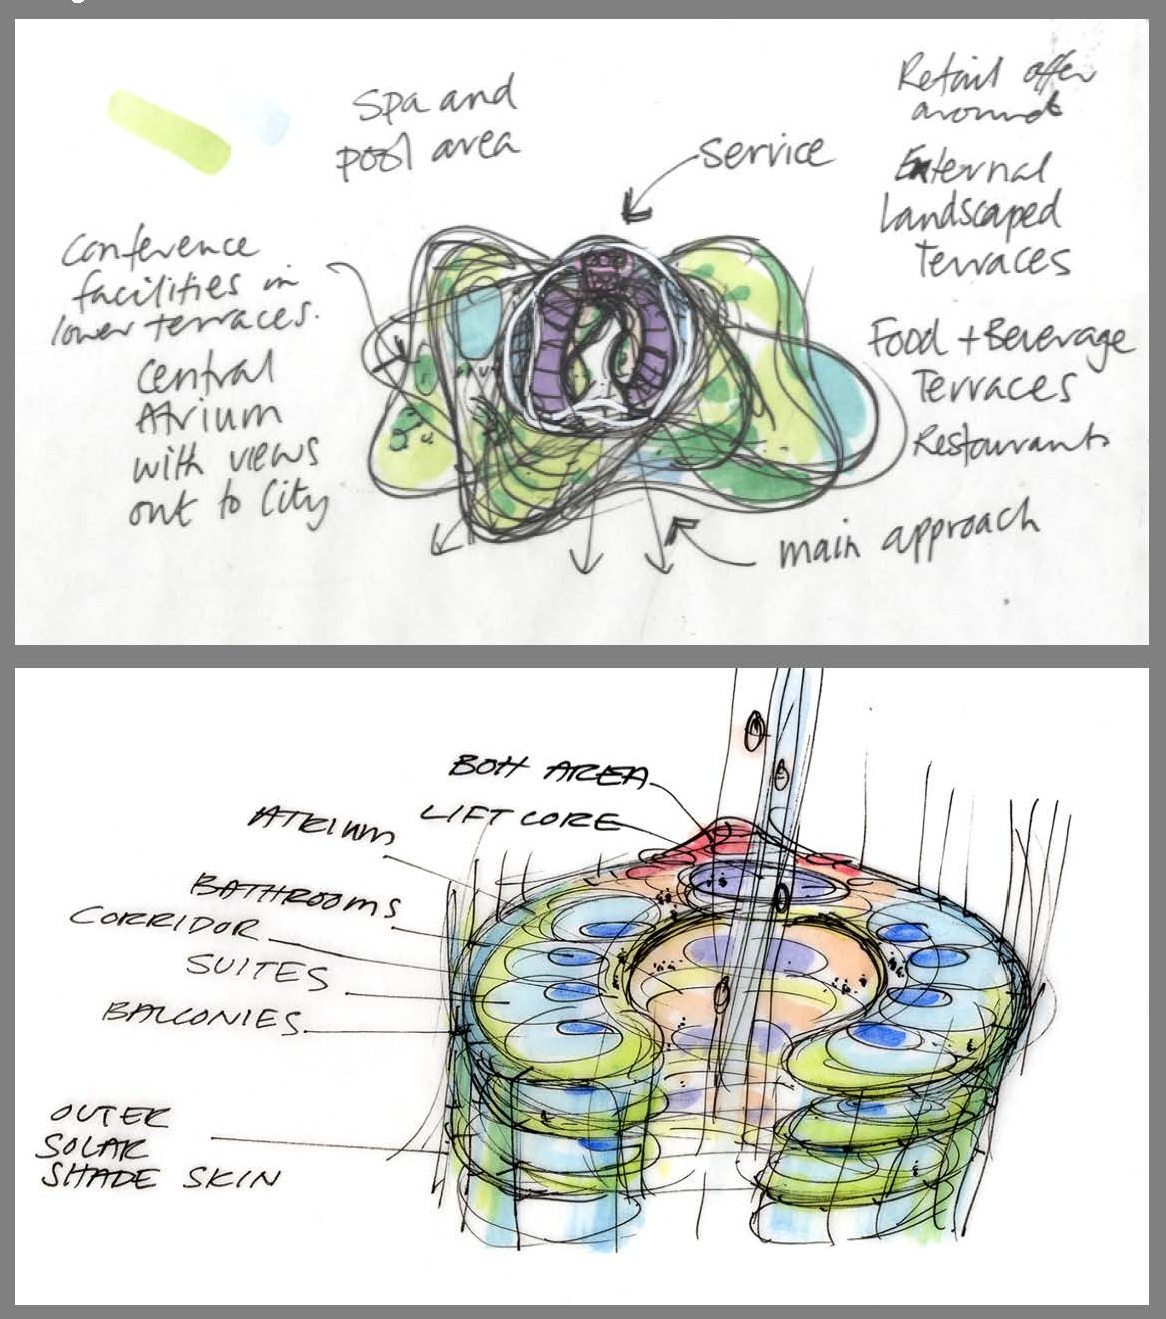 Spa and
pool area
Service
Retail offer
around
External
landscaped
Terraces
Food + Beverage
Terraces
Restaurants
Conference
facilities in
lower terraces.
Central
Atrium
with views
out to City
main approach
BOH AREA
LIFT CORE
ATRIUM
BATHROOMS
CORRIDOR
SUITES
BALCONIES
OUTER
SOLAR
SHADE SKIN